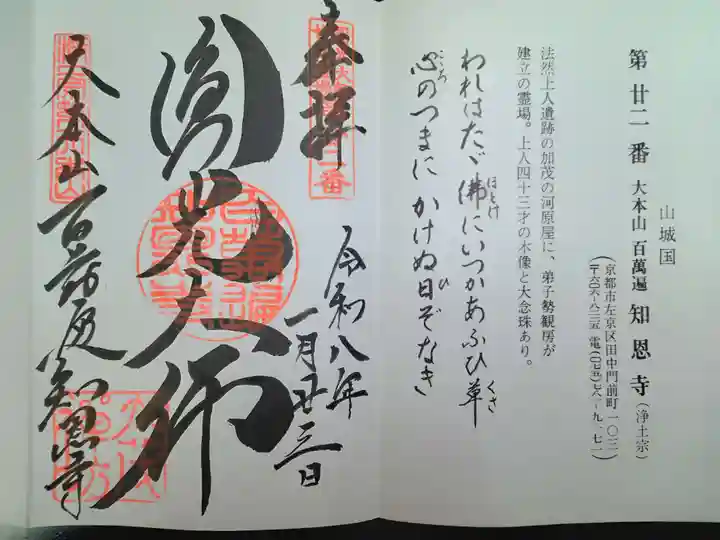 山城国
第廿二番 大本山 百萬遍 知恩寺（浄土宗）
（京都市左京区田中門前町一〇三
〒六〇六-八二二五 電(〇七五)七八一-九一七一）
法然上人遺跡の加茂の河原屋に、弟子勢観房が
建立の霊場。上人四十三才の木像と大念珠あり。
われはたゞ佛にいつかあふひ草
ほとけ
くさ
心のつまに かけぬ日ぞなき
こころ
ひ
奉拝
令和八年
一月廿三日
圓光大師
大本山百萬遍知恩寺